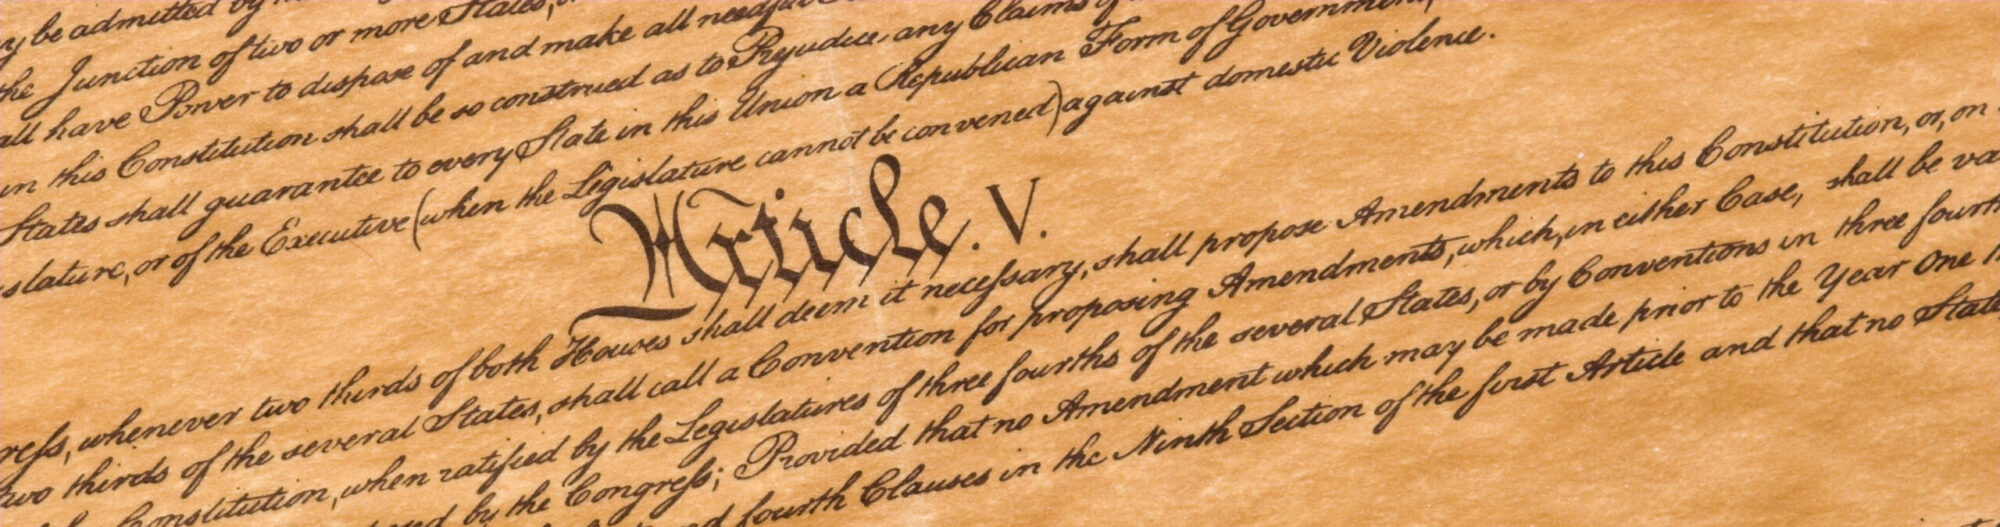 be admitted by
the Junction of two or more States,
all have Power to dispose of and make all needful
in this Constitution shall be so construed as to Prejudice any Claims of
States shall guarantee to every State in this Union a Republican Form of Government,
slature, or of the Executive (when the Legislature cannot be convened) against domestic Violence.
Article. V.
ress, whenever two thirds of both Houses shall deem it necessary, shall propose Amendments to this Constitution, or, on
two thirds of the several States, shall call a Convention for proposing Amendments, which, in either Case, shall be va
Constitution, when ratified by the Legislatures of three fourths of the several States, or by Conventions in three fourth
by the Congress; Provided that no Amendment which may be made prior to the Year One
fourth Clauses in the Ninth Section of the first Article and that no State